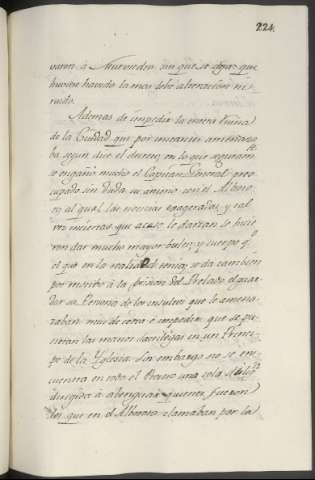 224.
varon à Murviedro, sin que se oyese que
huviese havido la mas leve alteracion ni
ruido.
Ademas de impedir la entera ruina
de la Ciudad, que por instantes amenaza
ba segun dice el decreto, en lo que
se engañó mucho el Capitan General, preo
cupado sin duda su animo con el Alboro
to, al qual, las noticias exageradas, y tal
vez inciertas que acaso le darian se hicie
ron dar mucho mayor bulto, y cuerpo q.e
el que en la realidad tenia, se da tambien
por motivo à la prision del Prelado el guar
dar su Persona de los insultos que le amena
zaban, mirò de otra è impedir que se pu
sieran las manos sacrilegas en un Princi
pe de la Yglesia. Sin embargo no se en
cuentra en todo el Proceso una sola
dirigida à aberiguar quienes fueron
los que en el Alboroto clamaban por la